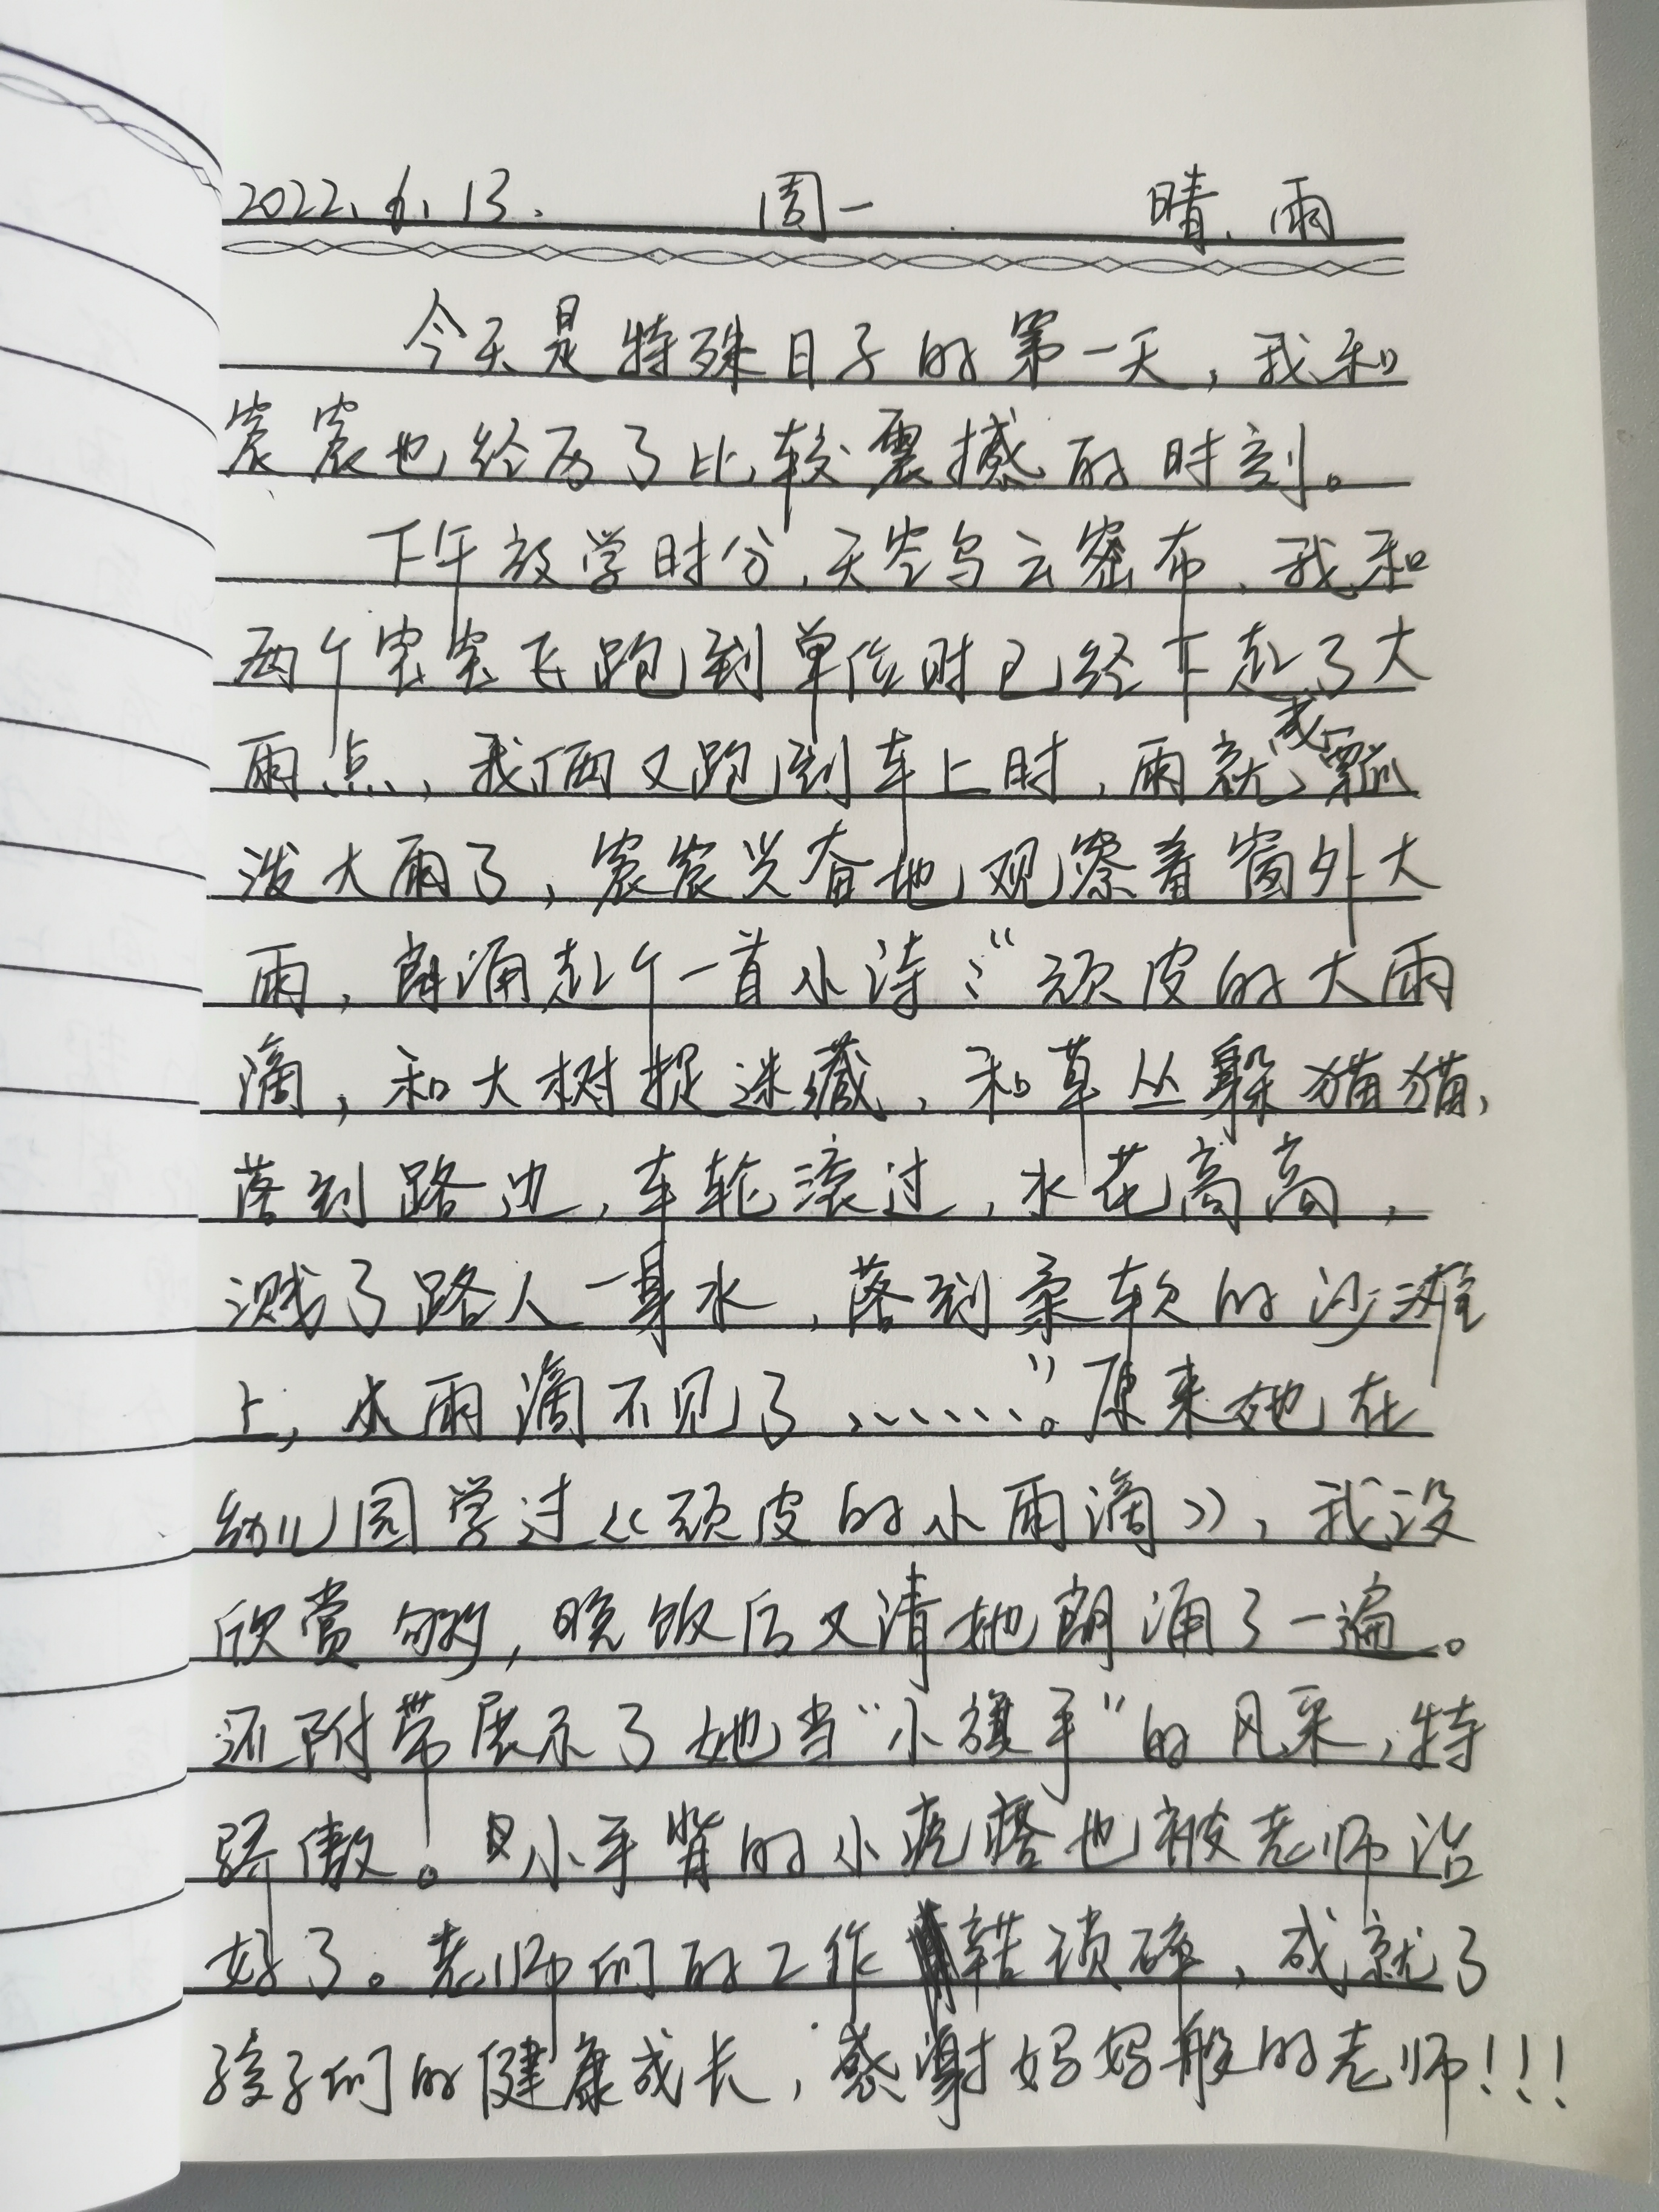 2022.6.13. 周一 晴.雨
今天是特殊日子的第一天,我和
宸宸也经历了比较震撼的时刻。
下午放学时分,天空乌云密布,我和
两个宝宝飞跑到单位时已经下起了大
雨点,我们俩又跑到车上时,雨就成瓢
泼大雨了,宸宸兴奋地观察着窗外大
雨,朗诵起个一首小诗:“顽皮的大雨
滴,和大树捉迷藏,和草丛躲猫猫,
落到路边,车轮滚过,水花高高,
溅了路人一身水,落到柔软的沙滩
上,小雨滴不见了……。”原来她在
幼儿园学过《顽皮的小雨滴》,我没
欣赏够,晚饭后又请她朗诵了一遍。
还附带展示了她当“小旗手”的风采,特
骄傲。小手背的小疙瘩也被老师治
好了。老师们的工作辛苦琐碎,成就了
孩子们的健康成长,感谢妈妈般的老师!!!